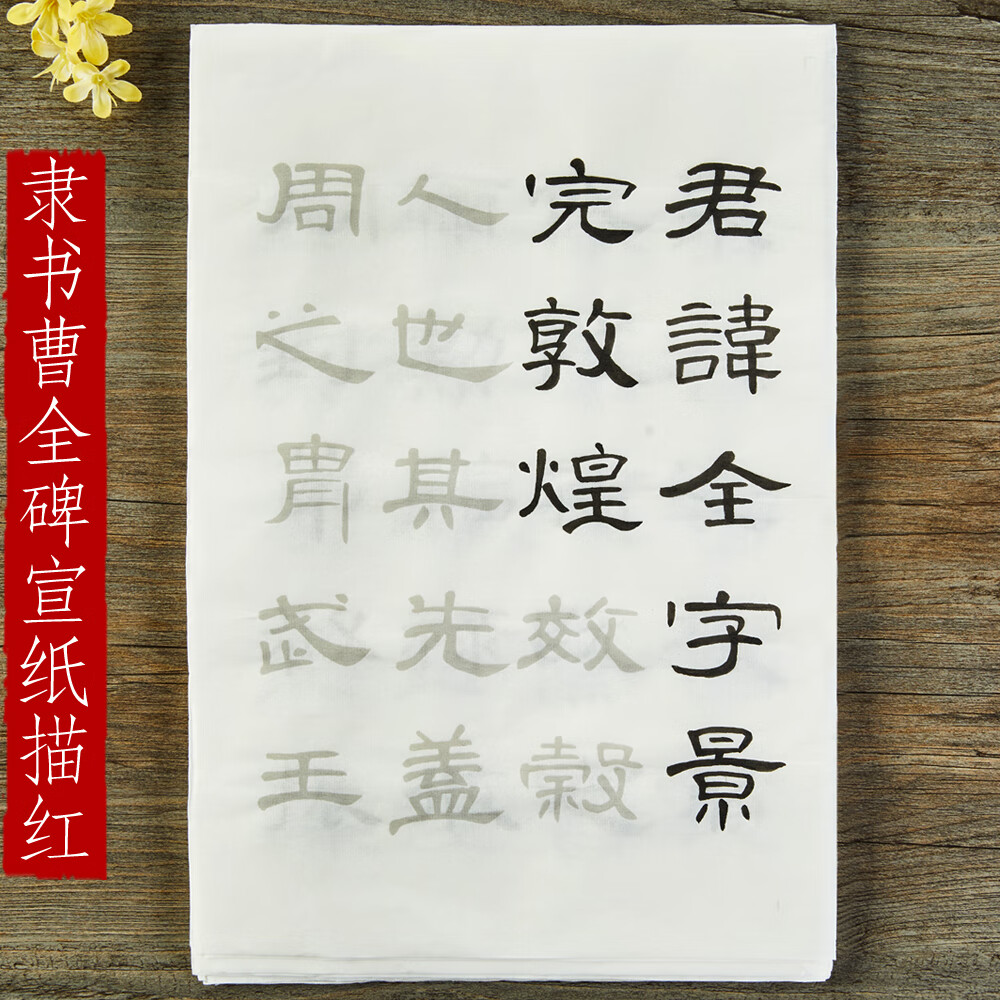 君諱全字景
完敦煌效穀
人也其先蓋
周之胄武王
隶书曹全碑宣纸描红